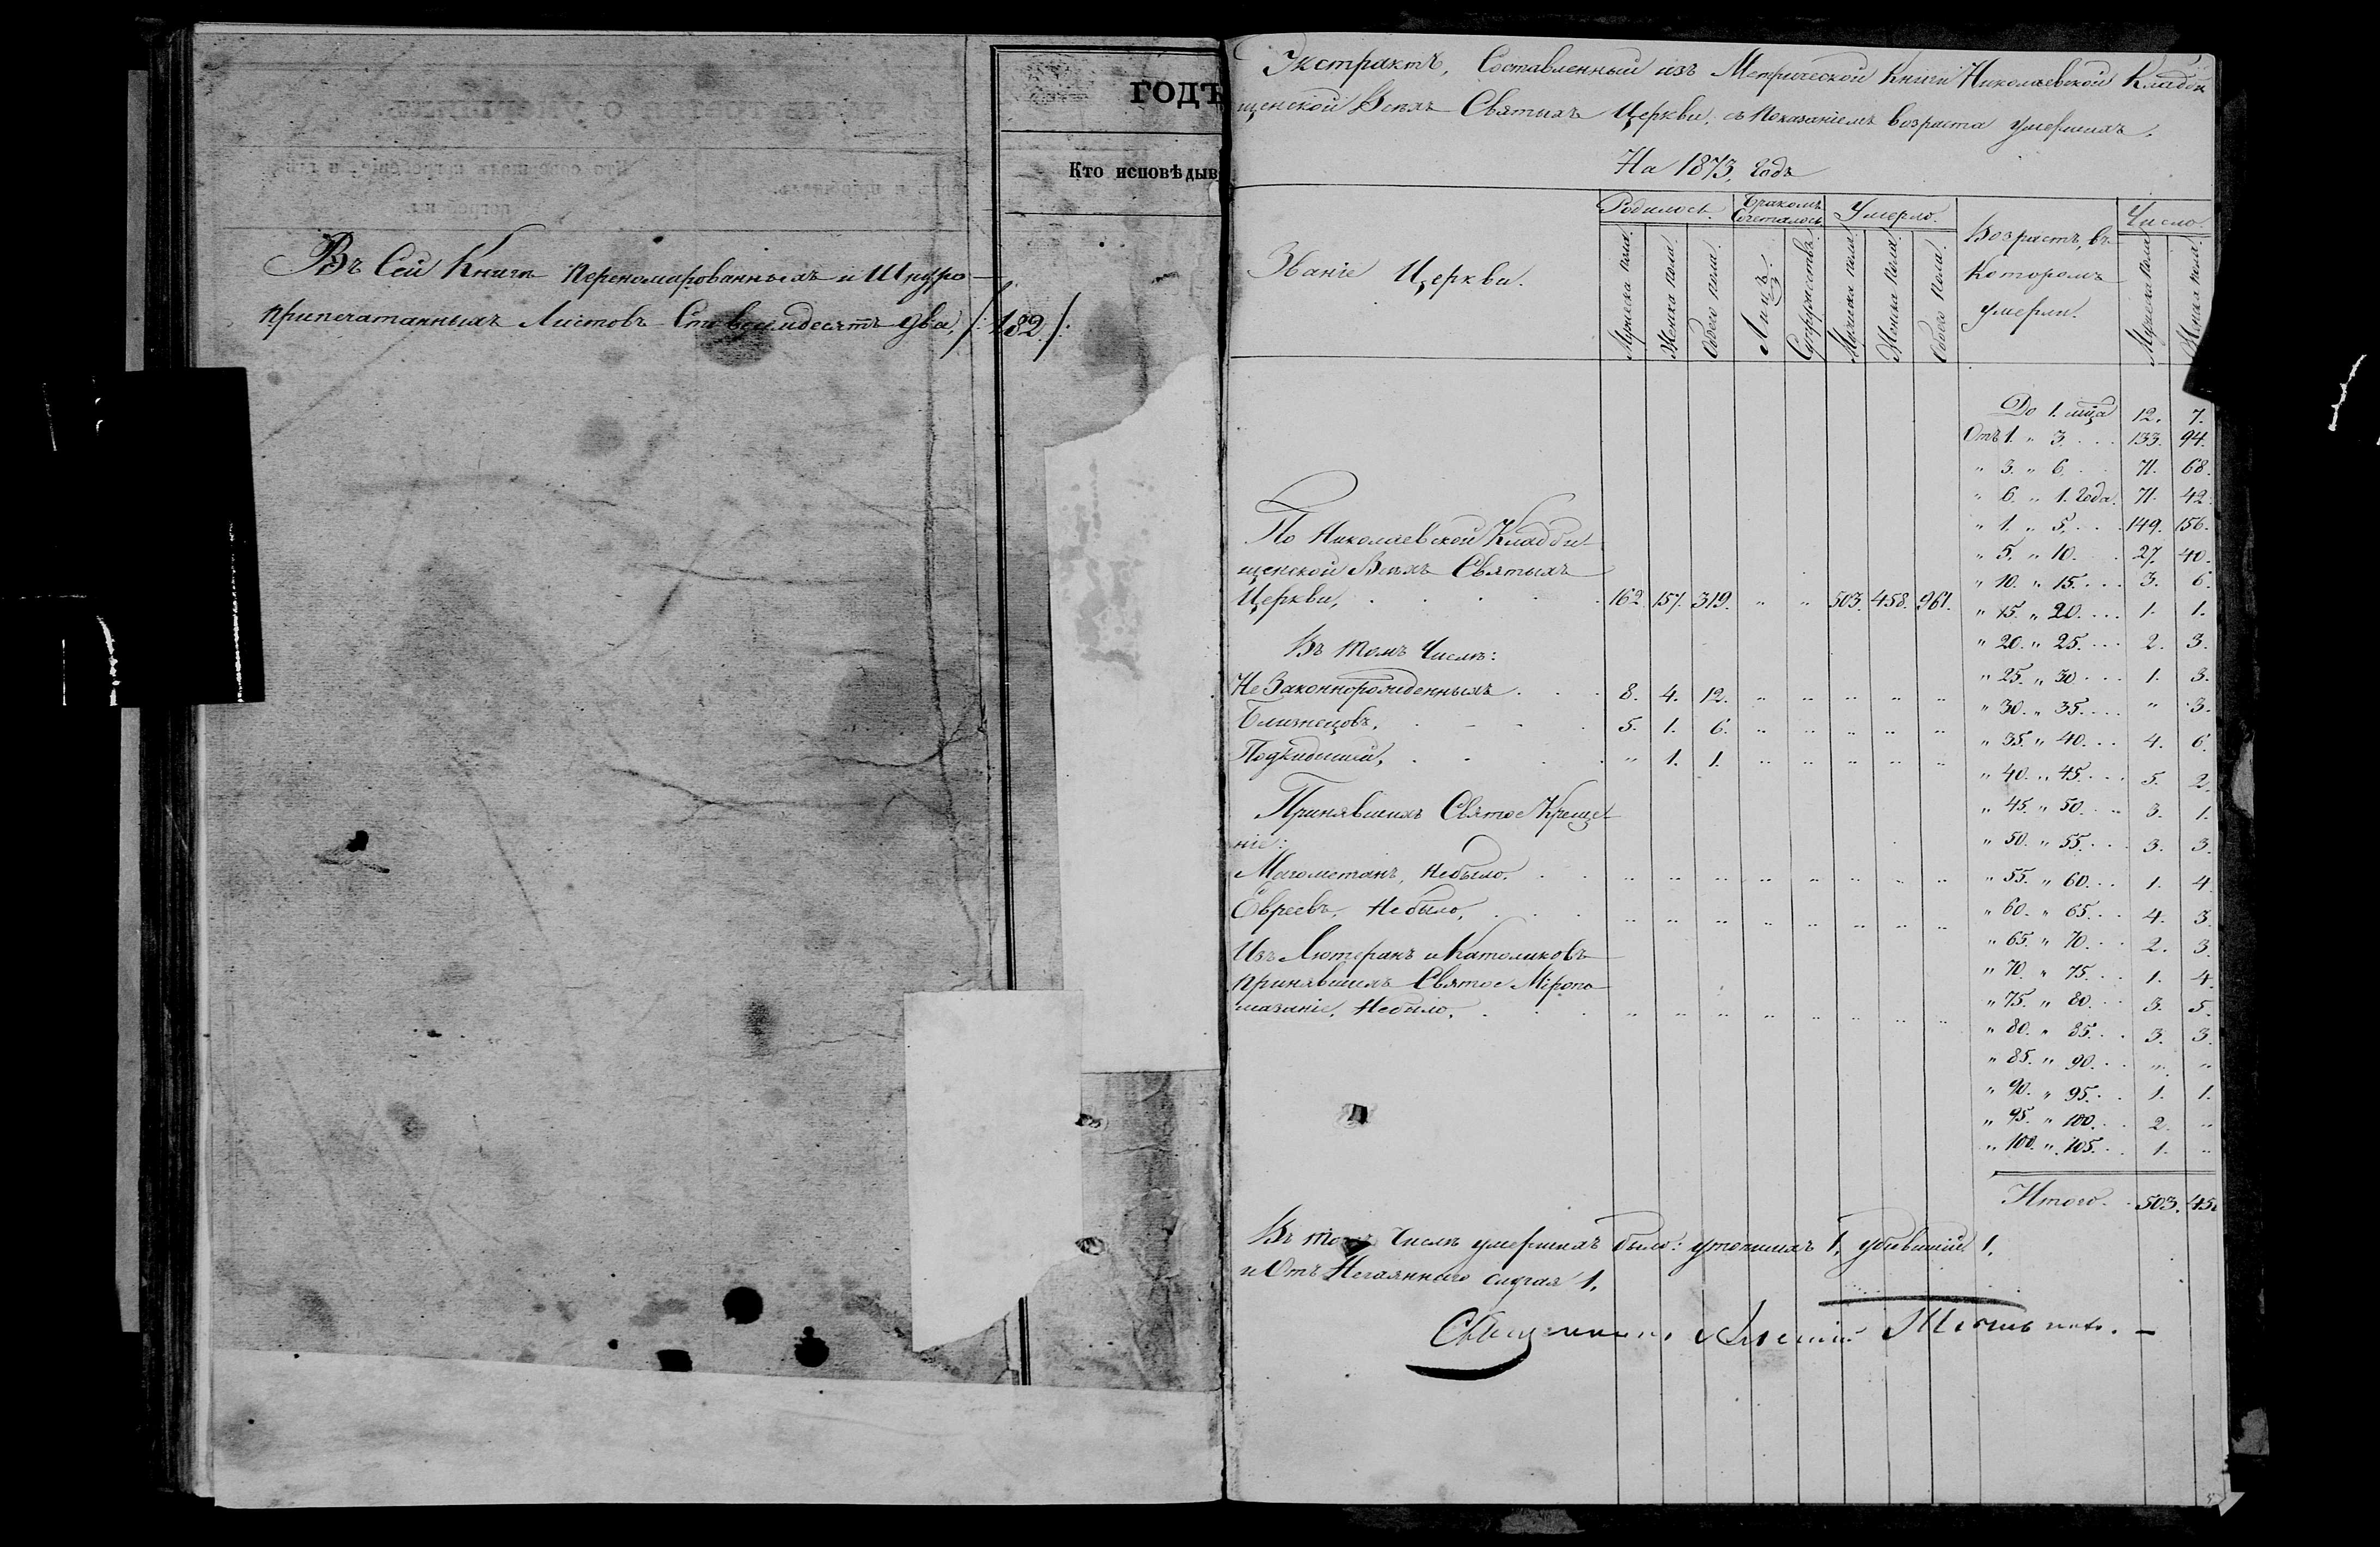 ГОДЪ
Кто исповѣдыв
Въ Сей Книгѣ переномарованныхъ и Шнуро-
припечатанныхъ Листовъ Сто восимдесятъ два, /:182:/
Экстрактъ, Составленный изъ Метрической Книги Николаевской Кладби
щенской Всѣхъ Святыхъ Церкви, съ показаніемъ возраста умершихъ,
На 1873, годъ
Званіе Церкви.
Родилось.
Бракомъ Сочеталось
Умерло.
Возрастъ, въ которомъ умерли.
Число.
Мужеска пола.
Женска пола.
Обоего пола.
Лицъ.
Супружествъ.
Мужеска пола.
Женска пола.
Обоего пола.
Мужеска пола
Женска пола.
До 1. мца 12. 7.
Отъ 1. " 3. . . . 133. 94.
" 3. " 6. . . 71. 68.
" 6. " 1. года. 71. 42.
" 1. " 5. . . . 149. 156.
" 5. " 10. . . 27. 40.
" 10. " 15. . . . 3. 6.
" 15. " 20. . . . 1. 1.
" 20. " 25. . . . 2. 3.
" 25. " 30 . . . 1. 3.
" 30. " 35. . . . " 3.
" 35. " 40. . . 4. 6.
" 40. " 45. . . . 5. 2.
" 45. " 50. . . 3. 1.
" 50. " 55. . . . 3. 3.
" 55. " 60. . . 1. 4.
" 60. " 65. . . 4. 3.
" 65. " 70. . . 2. 3.
" 70. " 75. . . 1. 4.
" 75. " 80. . . 3. 5.
" 80. " 85. . . 3. 3.
" 85. " 90. . . " "
" 90. " 95. . . 1. 1.
" 95. " 100. . . 2. "
" 100. " 105. . . 1. "
Итого. 503. 45
По Николаевской Кладби-
щенской Всѣхъ Святыхъ
Церкви, . . . . . 162. 157. 319. " " 503. 458. 961.
Въ томъ Числѣ:
Не Законнорожденныхъ . . . 8. 4. 12. " " " " "
Близнецовъ, . . . . 5. 1. 6. " " " " "
Подкидышей, . . . . " 1. 1. " " " " "
Принявшихъ Святое Креще-
ніе:
Магометанъ, Небыло. . . " " " " " " " "
Евреевъ, Небыло, . . . " " " " " " " "
Изъ Лютеранъ и Католиковъ
принявшихъ Святое Мѵропо
мазаніе, Небыло, . . . " " " " " " " "
Въ томъ Числѣ умершихъ было: утопшихъ 1, убившійся 1,
и Отъ Нечаяннаго случая 1.
Священникъ Алексій